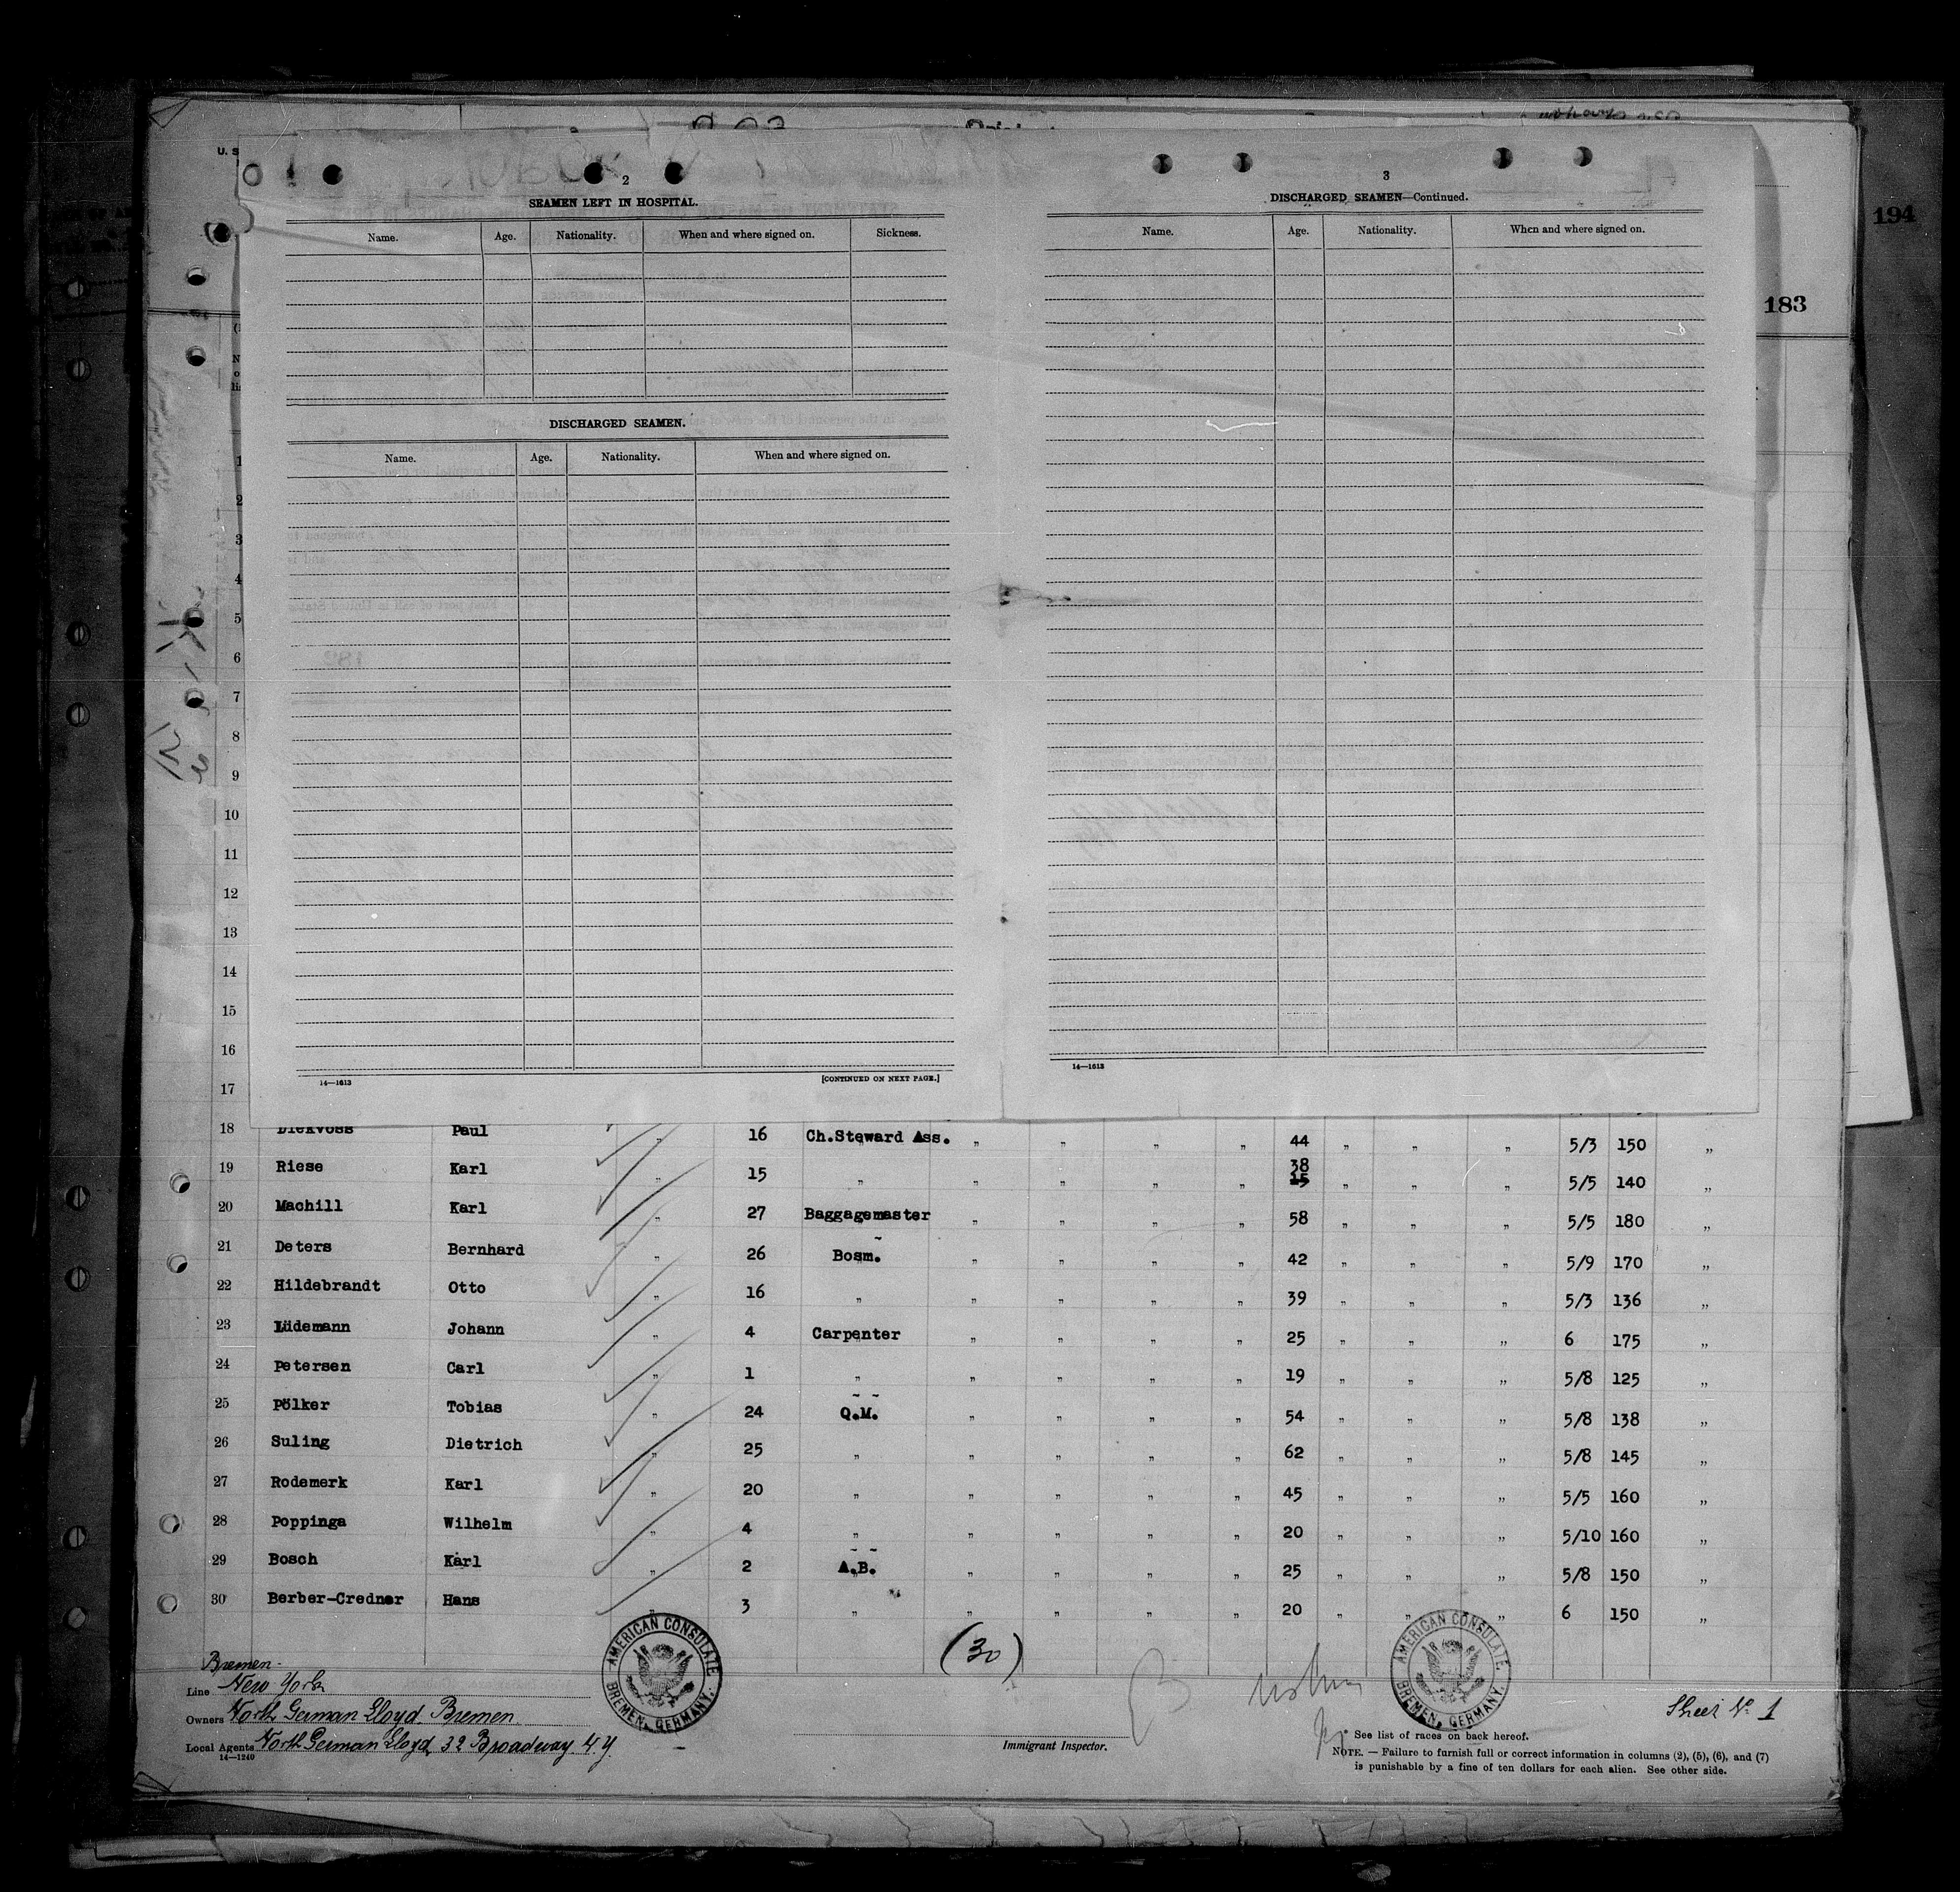 U. S
194
183
2
SEAMEN LEFT IN HOSPITAL.
Name. Age. Nationality. When and where signed on. Sickness.
DISCHARGED SEAMEN.
Name. Age. Nationality. When and where signed on.
14—1613 [CONTINUED ON NEXT PAGE.]
3
DISCHARGED SEAMEN—Continued.
Name. Age. Nationality. When and where signed on.
14—1613
1
2
3
4
5
6
7
8
9
10
11
12
13
14
15
16
17
18 Dickvoss Paul „ 16 Ch.Steward Ass. „ „ „ „ 44 „ „ „ 5/3 150 „
19 Riese Karl „ 15 „ „ „ „ „ 38 15 „ „ „ 5/5 140 „
20 Machill Karl „ 27 Baggagemaster „ „ „ „ 58 „ „ „ 5/5 180 „
21 Deters Bernhard „ 26 Bosm. „ „ „ „ 42 „ „ „ 5/9 170 „
22 Hildebrandt Otto „ 16 „ „ „ „ „ 39 „ „ „ 5/3 136 „
23 Lüdemann Johann „ 4 Carpenter „ „ „ „ 25 „ „ „ 6 175 „
24 Petersen Carl „ 1 „ „ „ „ „ 19 „ „ „ 5/8 125 „
25 Pölker Tobias „ 24 Q.M. „ „ „ „ 54 „ „ „ 5/8 138 „
26 Suling Dietrich „ 25 „ „ „ „ „ 62 „ „ „ 5/8 145 „
27 Rodemerk Karl „ 20 „ „ „ „ „ 45 „ „ „ 5/5 160 „
28 Poppinga Wilhelm „ 4 „ „ „ „ „ 20 „ „ „ 5/10 160 „
29 Bosch Karl „ 2 A.B. „ „ „ „ 25 „ „ „ 5/8 150 „
30 Berber-Credner Hans „ 3 „ „ „ „ „ 20 „ „ „ 6 150 „
(30)
Bremen-
Line New York
Owners North German Lloyd, Bremen
Local Agents North German Lloyd, 32 Broadway N.Y.
14—1240
AMERICAN CONSULATE.
BREMEN, GERMANY.
Immigrant Inspector.
AMERICAN CONSULATE.
BREMEN, GERMANY.
Sheet No 1
* See list of races on back hereof.
NOTE. — Failure to furnish full or correct information in columns (2), (5), (6), and (7)
is punishable by a fine of ten dollars for each alien. See other side.